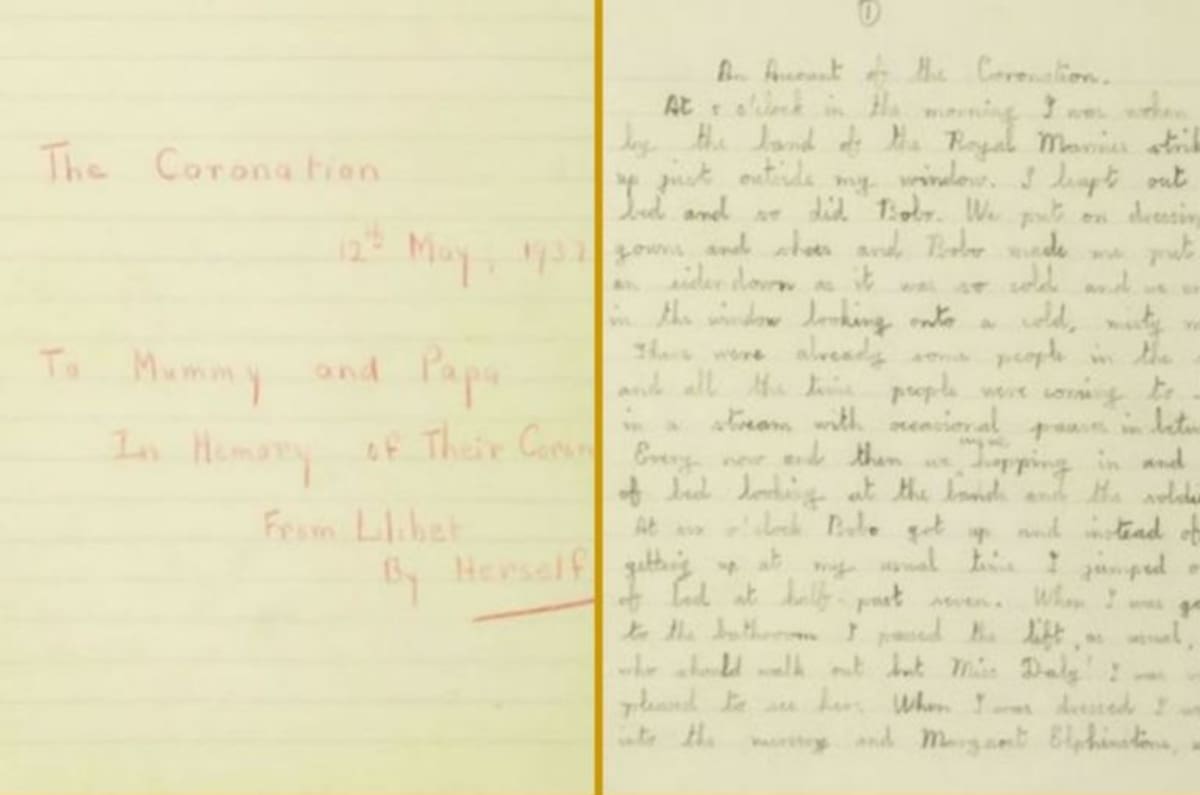 The Coronation
12th May, 1937
To Mummy and Papa
In Memory of Their Coron
From Lilibet
By Herself
1
An Account of the Coronation.
At 5 o'clock in the morning I was woken
by the band of the Royal Marines strik
up just outside my window. I leapt out
bed and so did Bobo. We put on dressing
gowns and shoes and Bobo made me put
an eiderdown as it was so cold and we
in the window looking onto a cold, misty
There were already some people in the
and all the time people were coming to
in a stream with occasional pauses in betw
Every now and then we were hopping in and
of bed looking at the bands and the soldie
At six o'clock Bobo got up and instead of
getting up at my usual time I jumped o
of bed at half-past seven. When I was go
to the bathroom I passed the lift, as usual,
who should walk out but Miss Daly! I was
pleased to see her. When I was dressed I w
into the nursery and Margaret Elphinstone,